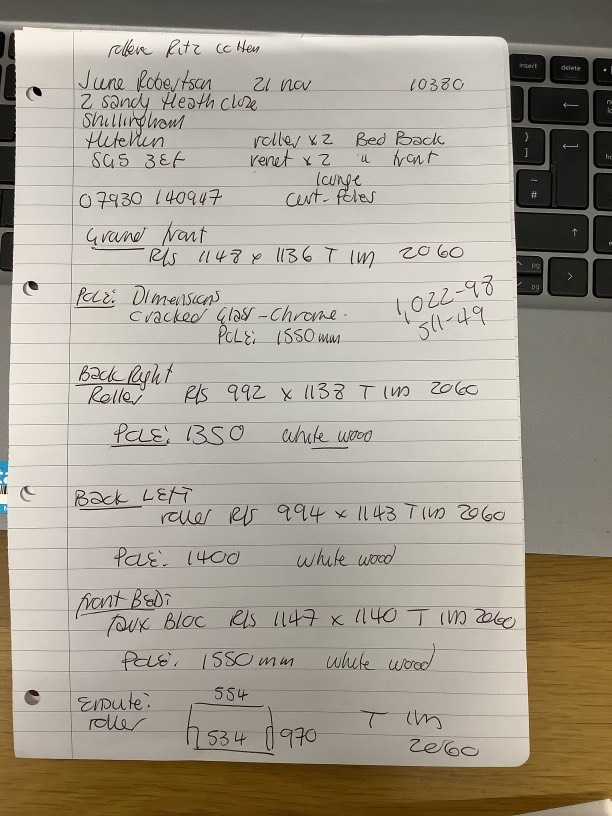 rollers Ritz
June Robertson 21 nov 10380
2 Sandy Heath Close
Shillingham
SG5 3EF
roller x2 Bed Back
x2 " front
lounge
Curt-Poles
07930 140947
Ground front
R/S 1148 x 1136 T IM 2060
Pole: Dimensions
Cracked Glass-Chrome.
Pole: 1550mm
1,022-98
511-49
Back Right
Roller R/S 992 x 1138 T IM 2060
Pole: 1350 white wood
Back LEFT
roller R/S 994 x 1143 T IM 2060
Pole: 1400 white wood
front BED:
Bloc R/S 1147 x 1140 T IM 2060
Pole: 1550mm white wood
roller
554
534 970
T IM
2060
insert
delete